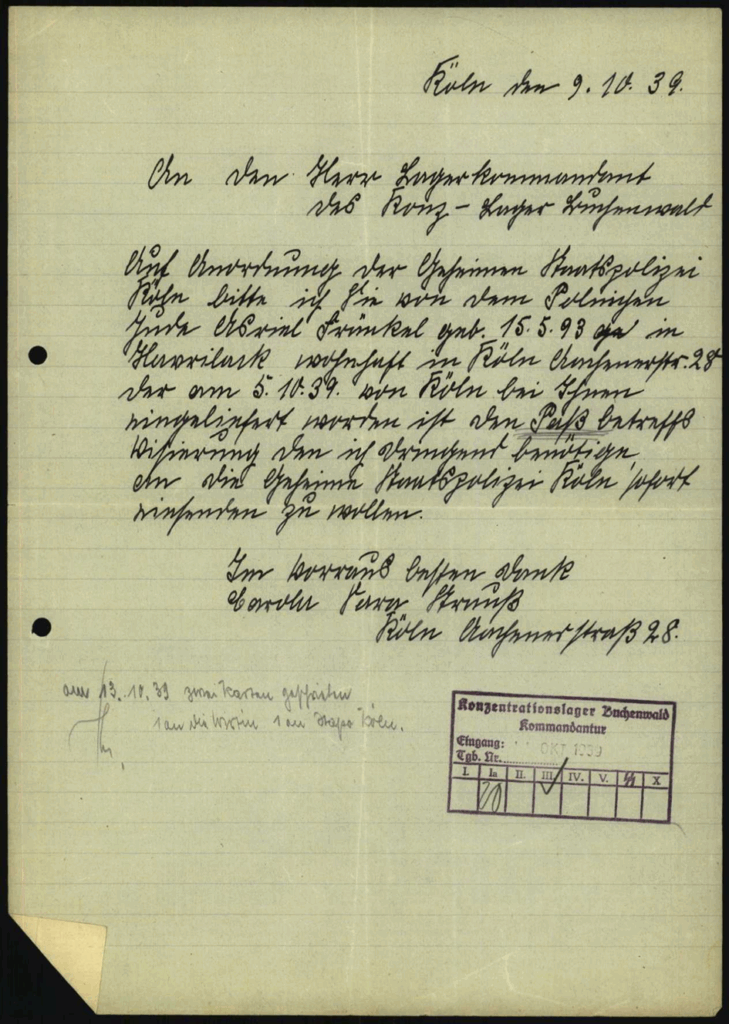 Köln den 9. 10. 39.
An den Herr Lagerkommandant
des Konz-Lager Buchenwald
Auf Anordnung der Geheimen Staatspolizei
Köln bitte ich Sie von dem Polnichen
Jude Asriel Fränkel geb. 15.5.93 in
Havrilack wohnhaft in Köln Aachenerstr. 28
der am 5.10.39. von Köln bei Ihnen
eingeliefert worden ist den Paß betreffs
Visierung den ich dringend benötige,
an die Geheime Staatspolizei Köln sofort
einsenden zu wollen.
Im Vorraus besten Dank
Carola Sara Strauß
Köln Aachenerstraß 28.
am 13.10.39 zwei Karten geschrieben
1 an die 1 an Stapo Köln.
Konzentrationslager Buchenwald
Kommandantur
Eingang: OKT 1939
Tgb. Nr.
I. Ia II. III. IV. V. ᛋᛋ X